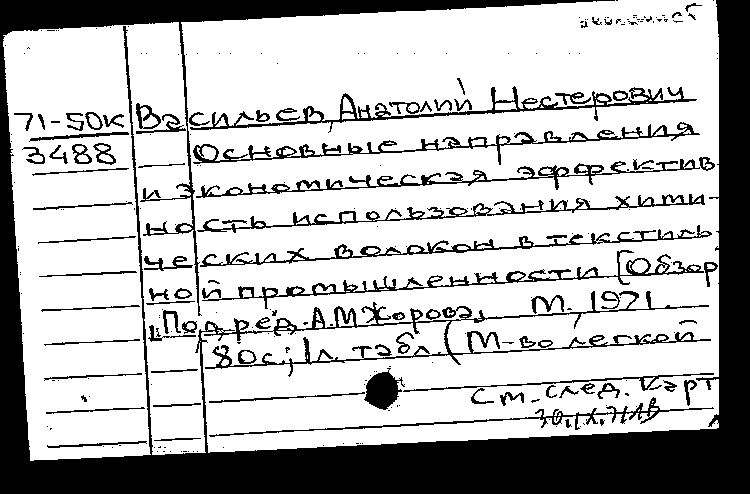 71-50к Васильев, Анатолий Нестерович
3488 Основные направления
и экономическая эффектив
ность использования хими-
ческих волокон в текстиль
ной промышленности [Обзор
Под ред. А.М Жорова, М., 1971.
80с.; 1л. табл. (М-во легкой
См. след. карт
30.IX.71